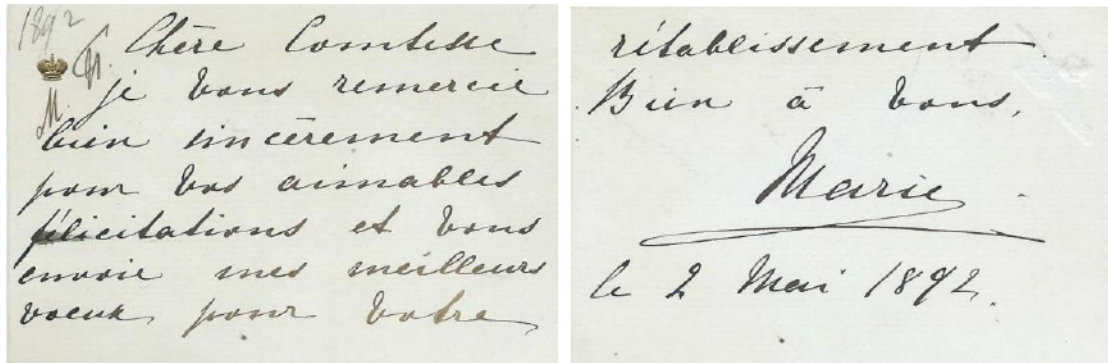 1892
Chère Comtesse
je vous remercie
M.
bien sincèrement
pour vos aimables
félicitations et vous
envoie mes meilleurs
voeux pour votre
rétablissement.
Bien à vous,
Marie
le 2 Mai 1892.